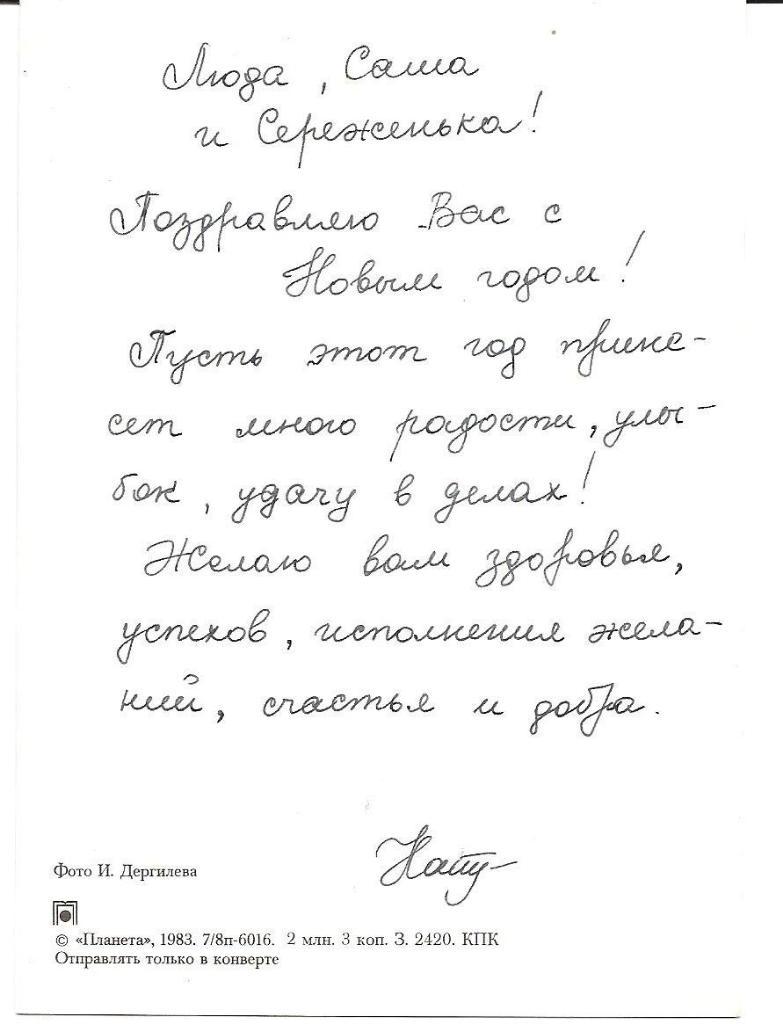 Люда, Саша
и Сереженька!
Поздравляю Вас с
Новым годом!
Пусть этот год прине-
сет много радости, улы-
бок, удачу в делах!
Желаю вам здоровья,
успехов, исполнения жела-
ний, счастья и добра.
Фото И. Дергилева
© «Планета», 1983. 7/8п-6016. 2 млн. 3 коп. З. 2420. КПК
Отправлять только в конверте